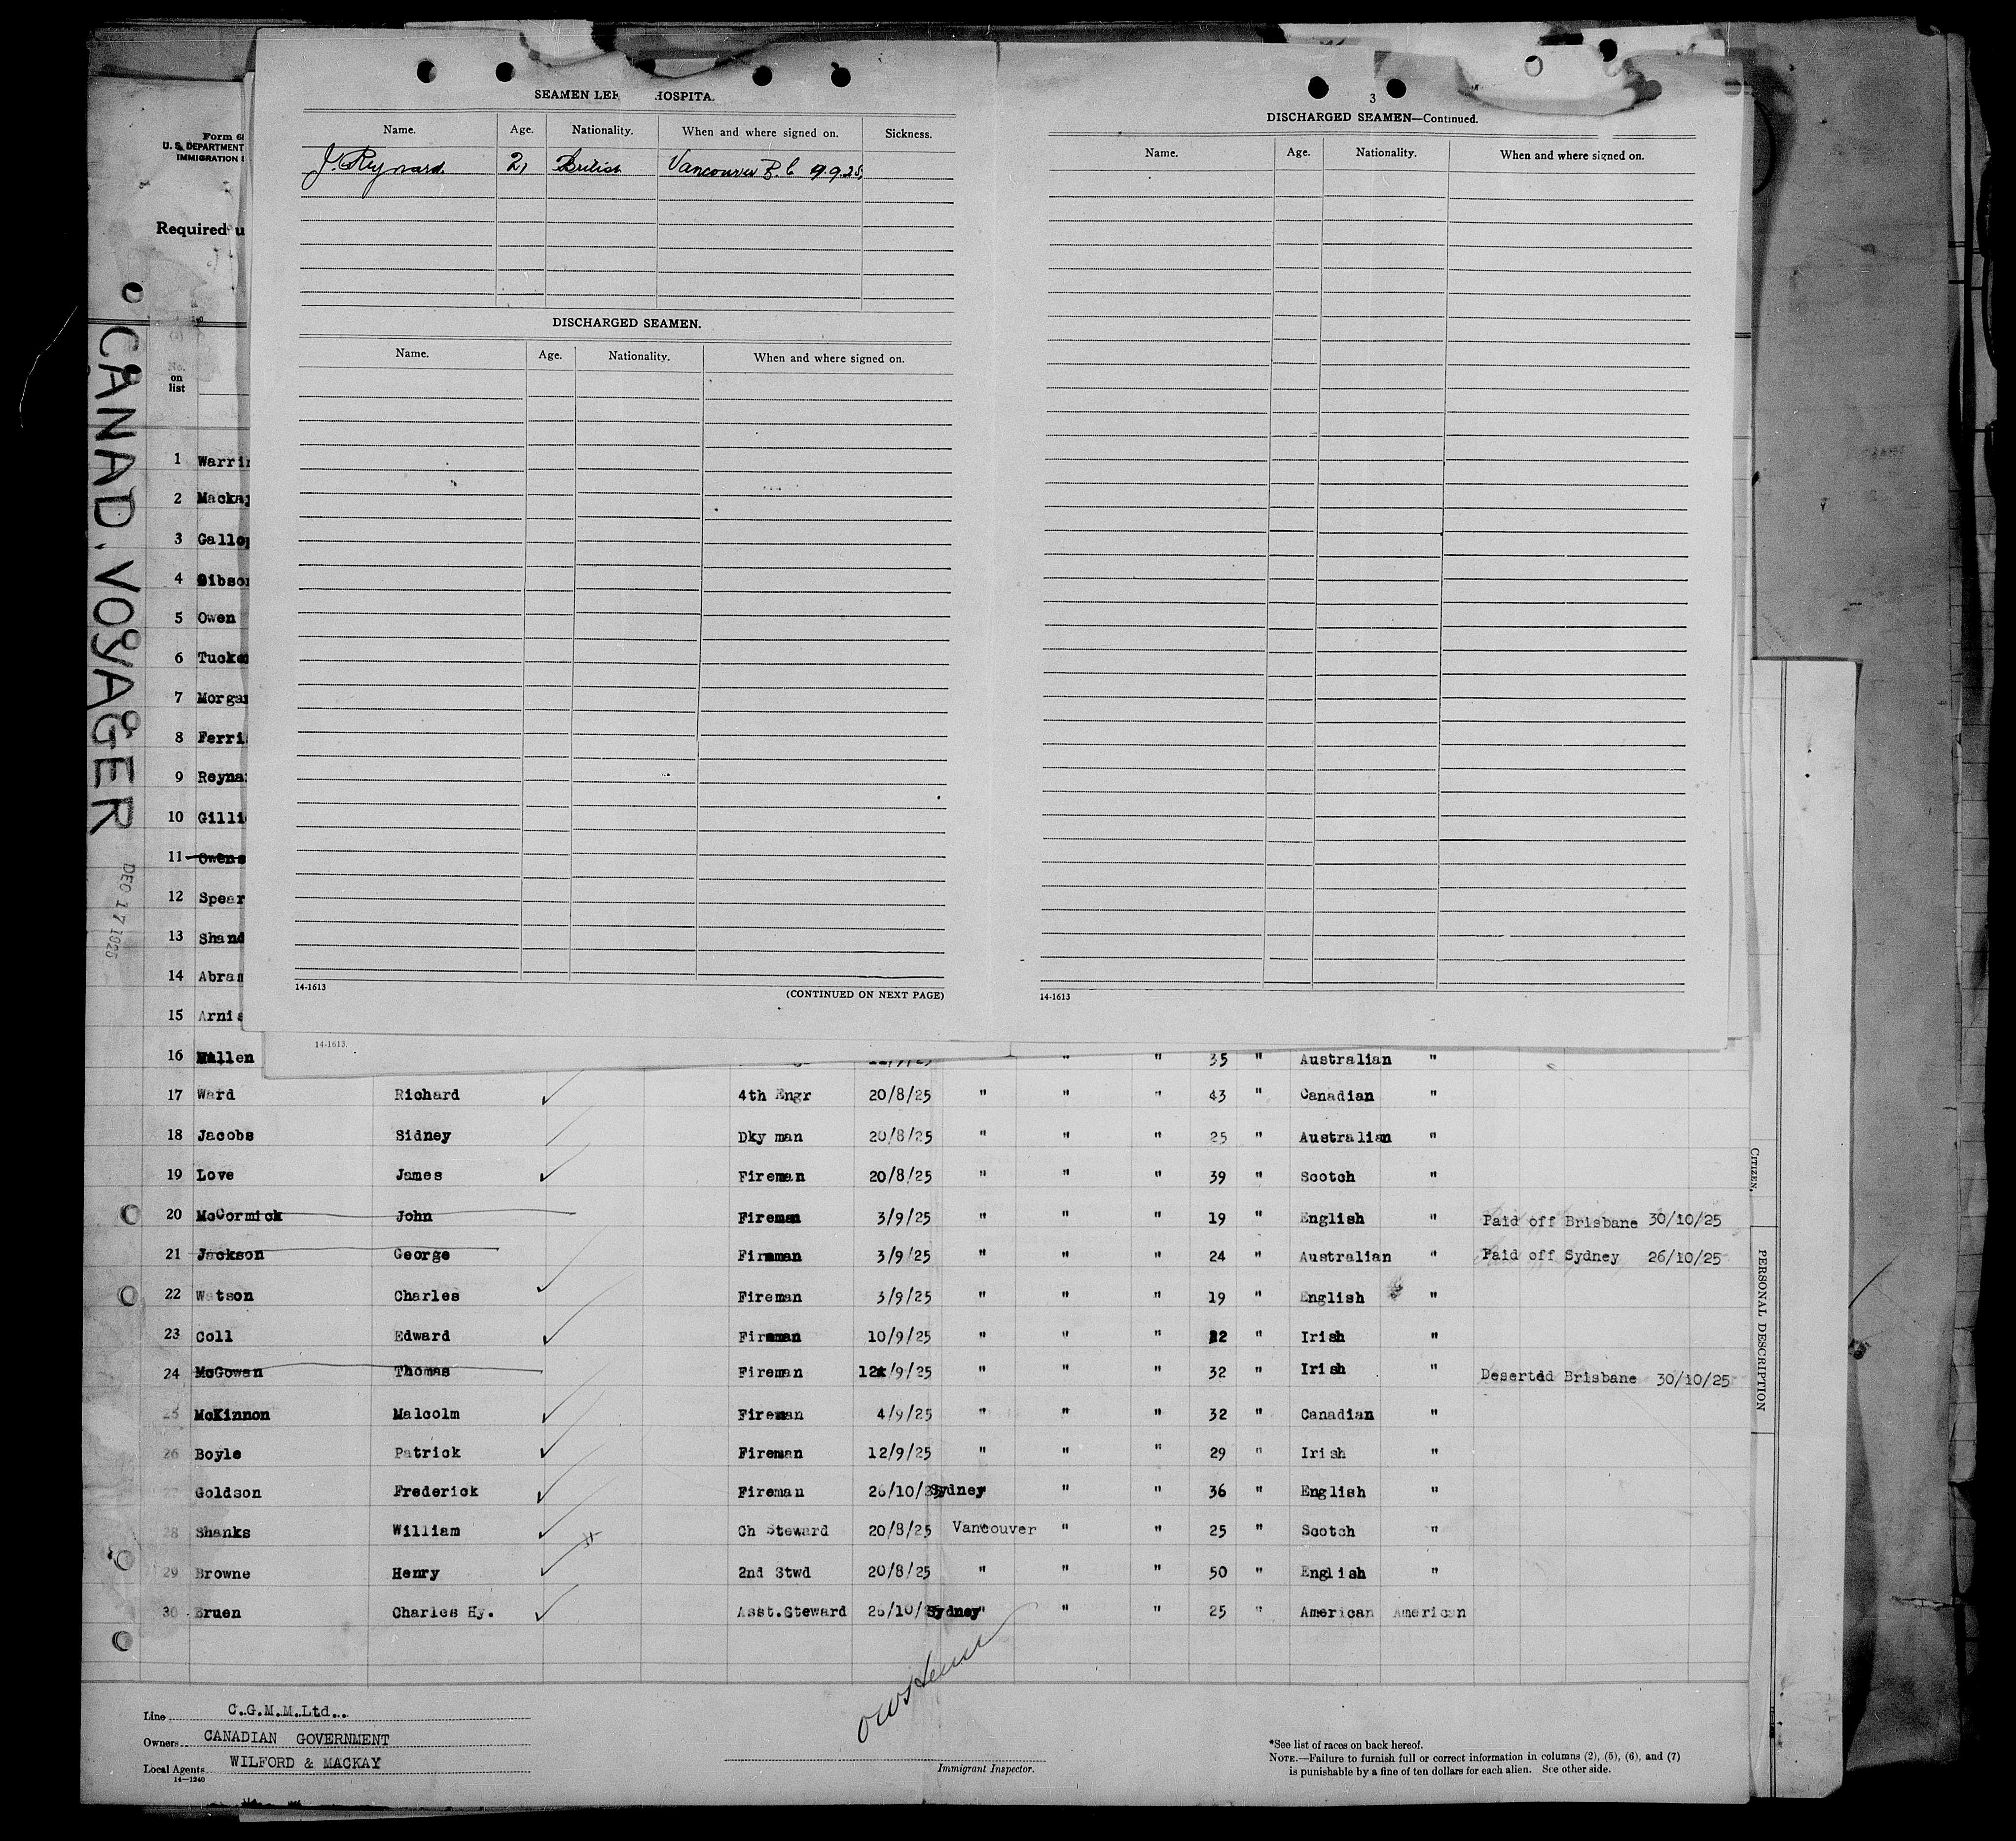 SEAMEN LEF HOSPITA.
Name. Age. Nationality. When and where signed on. Sickness.
J. Reynard. 21 British Vancouver B.C. 9.9.25,
DISCHARGED SEAMEN.
Name. Age. Nationality. When and where signed on.
14-1613 (CONTINUED ON NEXT PAGE)
14-1613.
3
DISCHARGED SEAMEN—Continued.
Name. Age. Nationality. When and where signed on.
14-1613
Form 68
U. S. DEPARTMENT
IMMIGRATION
Required u
CANAD. VOYAGER
DEC 17 1925
No.
on
list
1 Warri
2 Mackay
3 Gallo
4 Gibson
5 Owen
6 Tucke
7 Morga
8 Ferri
9 Reyna
10 Gilli
11 Owens
12 Spear
13 Shand
14 Abram
15 Arnis
16 Mallen " " 35 " Australian "
17 Ward Richard 4th Engr 20/8/25 " " " 43 " Canadian "
18 Jacobs Sidney Dky man 20/8/25 " " " 25 " Australian "
19 Love James Fireman 20/8/25 " " " 39 " Scotch "
20 McCormick John Fireman 3/9/25 " " " 19 " English " Paid off Brisbane 30/10/25
21 Jackson George Fireman 3/9/25 " " " 24 " Australian " Paid off Sydney 26/10/25
22 Watson Charles Fireman 3/9/25 " " " 19 " English "
23 Coll Edward Fireman 10/9/25 " " " 22 " Irish "
24 McGowan Thomas Fireman 12/9/25 " " " 32 " Irish " Desertdd Brisbane 30/10/25
25 McKinnon Malcolm Fireman 4/9/25 " " " 32 " Canadian "
26 Boyle Patrick Fireman 12/9/25 " " " 29 " Irish "
27 Goldson Frederick Fireman 26/10/25 Sydney " " 36 " English "
28 Shanks William Ch Steward 20/8/25 Vancouver " " 25 " Scotch "
29 Browne Henry 2nd Stwd 20/8/25 " " " 50 " English "
30 Bruen Charles Hy. Asst.Steward 26/10/ Sydney " " 25 " American American
CITIZEN.
PERSONAL DESCRIPTION
Line C.G.M.M.Ltd..
Owners CANADIAN GOVERNMENT
Local Agents WILFORD & MACKAY
14—1240
Immigrant Inspector.
*See list of races on back hereof.
NOTE.—Failure to furnish full or correct information in columns (2), (5), (6), and (7)
is punishable by a fine of ten dollars for each alien. See other side.